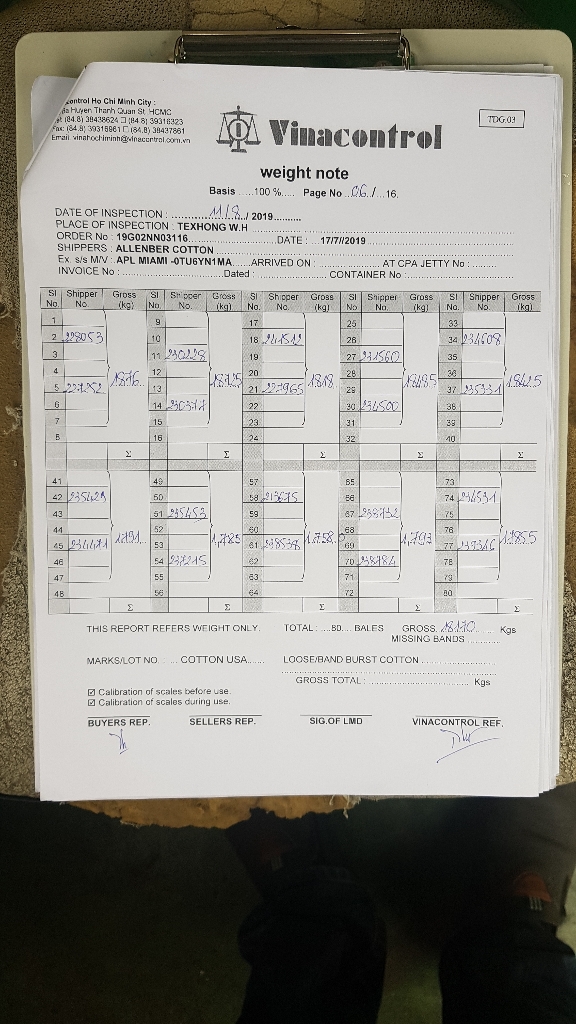 control Ho Chi Minh City :
Huyen Thanh Quan St. HCMC
(84.8) 38438624 □ (84.8) 39316323
Fax: (84.8) 39316961 □ (84.8) 38437861
Email: vinahochiminh@vinacontrol.com.vn
Vinacontrol
TDG.03
weight note
Basis .....100 %..... Page No .06./ ...16.
DATE OF INSPECTION : 11/8 / 2019
PLACE OF INSPECTION : TEXHONG W.H
ORDER No : 19G02NN03116 DATE : 17/7//2019
SHIPPERS : ALLENBER COTTON
Ex. s/s M/V : APL MIAMI -0TU6YN1MA ARRIVED ON : AT CPA JETTY No :
INVOICE No : Dated : CONTAINER No :
Sl No. Shipper No. Gross (kg) Sl No. Shipper No. Gross (kg) Sl No. Shipper No. Gross (kg) Sl No. Shipper No. Gross (kg) Sl No. Shipper No. Gross (kg)
1 9 17 25 33
2 228053 10 18 241512 26 34 234608
3 11 230228 19 27 231560 35
4 1876 12 20 1818 28 36
5 227252 13 21 227965 29 37
6 14 22 30 234500 38
7 15 23 31 39
8 16 24 32 40
Σ Σ Σ Σ Σ
41 49 57 65 73
42 235429 50 58 213675 66 74 234531
43 51 235453 59 67 233732 75
44 1791 52 60 68 1793 76 1855
45 234471 53 61 238538 69 77
46 54 237215 62 70 238784 78
47 55 63 71 79
48 56 64 72 80
Σ Σ Σ Σ Σ
THIS REPORT REFERS WEIGHT ONLY. TOTAL : ....80.... BALES GROSS 18170 Kgs
MISSING BANDS
MARKS/LOT NO .... COTTON USA...... LOOSE/BAND BURST COTTON
GROSS TOTAL : Kgs
☑ Calibration of scales before use.
☑ Calibration of scales during use.
BUYERS REP. SELLERS REP. SIG.OF LMD VINACONTROL REF.